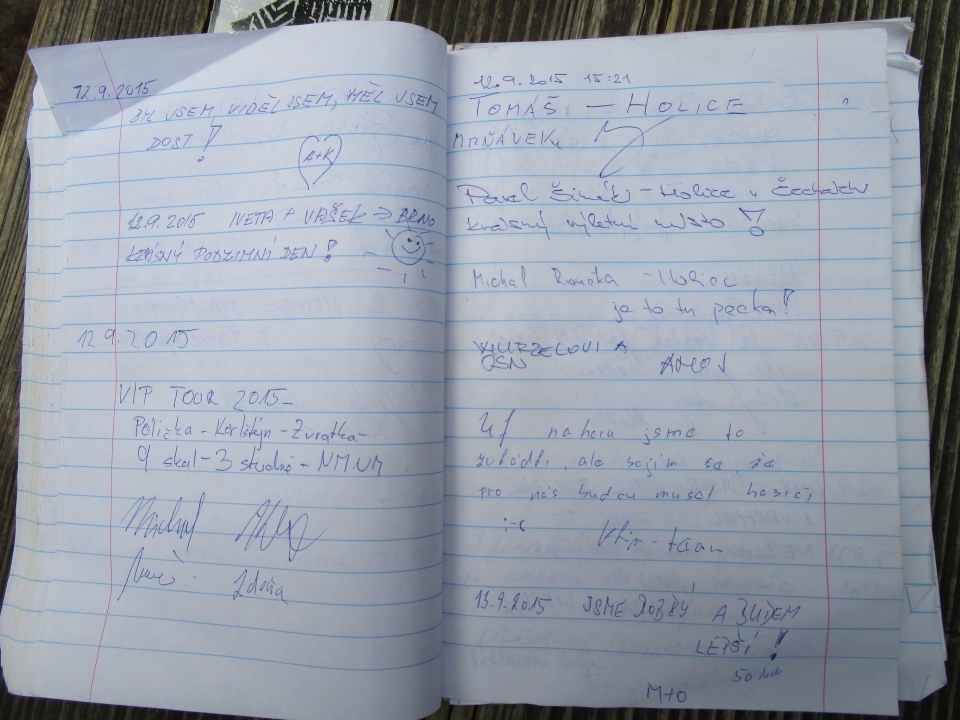 12.9.2015
BYL JSEM, VIDĚL JSEM, MĚL JSEM
DOST!
A+K
12.9.2015 IVETA + VAŠEK → BRNO
KRÁSNÝ PODZIMNÍ DEN!
12.9.2015
VIP TOUR 2015 -
Polička - Karlštejn - Zvratka -
9 skal - 3 studně - NMNM
Michal
Zdeňa
12.9.2015 15:21
TOMÁŠ — HOLICE
MRŇÁVEK
Pavel Šimák - Holice v Čechách
krásný výletní místo!
Michal - Holice
je to tu pecka!
OSN
Uf nahoru jsme to
zvládli, ale bojím se, že
pro nás budou muset hasiči
;-(
13.9.2015 JSME DOBŘÝ A BUDEM
LEPŠÍ!
M+O